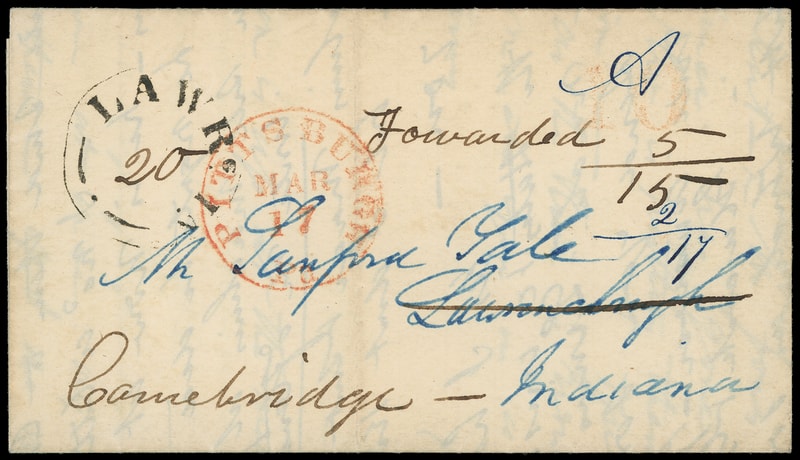 A
10
LAWR
20
PITTSBURGH
MAR
17
PA
Forwarded 5
15
2
17
Mr Sanford Yale
Lawrenceburgh
Camebridge — Indiana